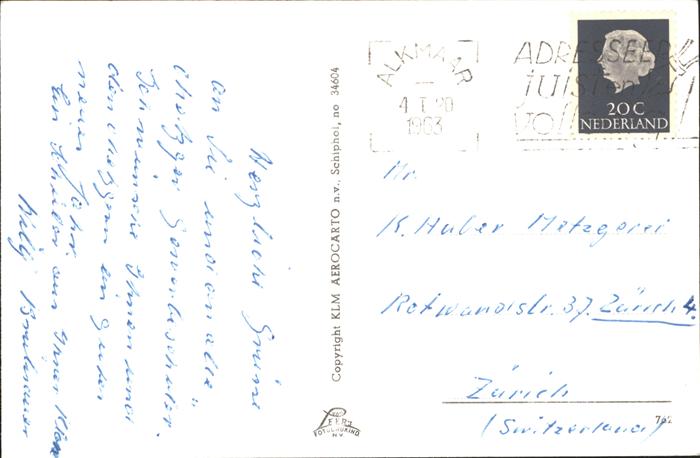 Herzliche Grüsse
an Sie und an alle
Metzger Gewerbeschüler.
Ich wünsche Ihnen und
den Metzgern ein gutes
neues Jahr
Ein Schüler aus Ihrer Klasse
Willy
Copyright KLM AEROCARTO n.v., Schiphol, no 34604
LEER'S
FOTODRUKIND
N.V.
ALKMAAR
4 I 20
1963
ADRESSEER
JUIST
VOLL
20 C
NEDERLAND
Mr.
K. Huber Metzgerei
Rotwandstr. 37. Zürich 4.
Zürich
(Switzerland)
762